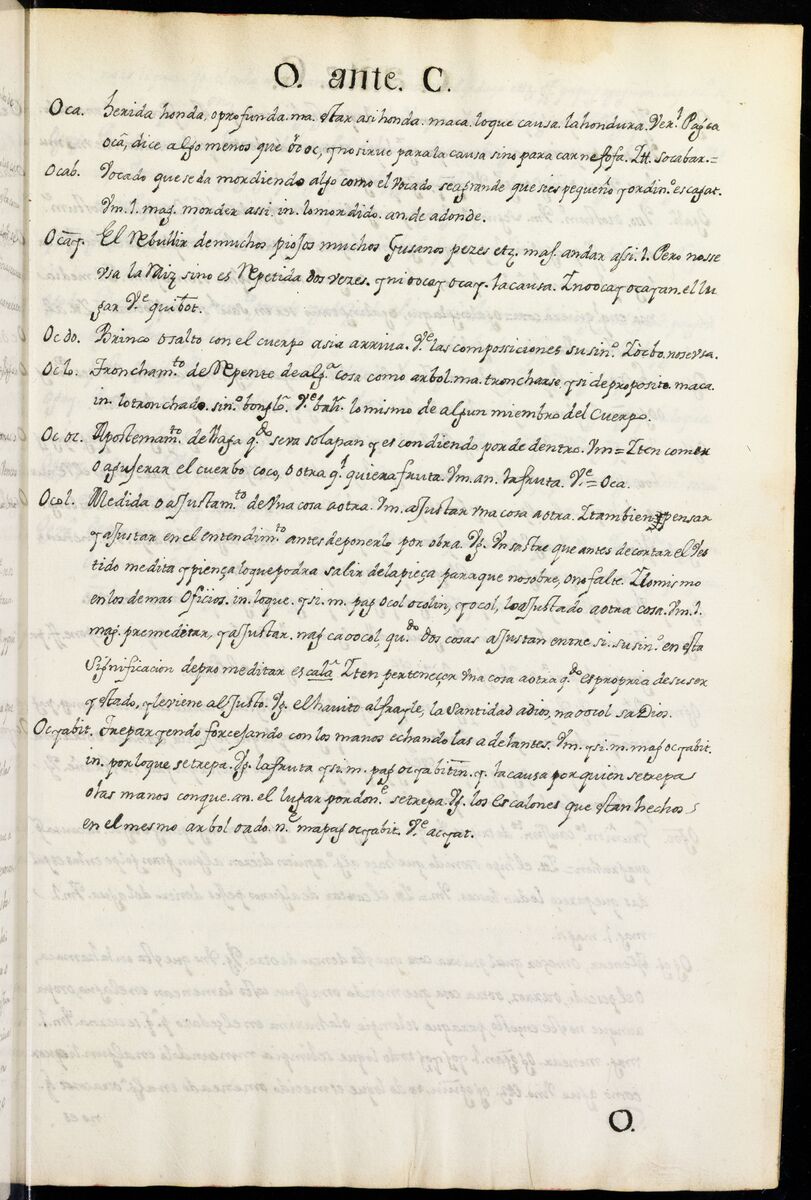 O. ante. C.
Oca. herida honda, o profunda. ma. star asi honda. maca. lo que causa. la hondura. Ver.l
ocã, dice algo menos que y no sirve para la causa sino para carne fofa. Itt. socabar.=
Ocab. Vocado que se da mordiendo algo como el Vocado sea grande que si es pequeño y ordin.o es capat.
Vm. l. mag. morder assi. in. lo mordido. an. de adonde.
Ocãy. El Rebullir de muchos piojos muchos Gusanos pezes etz. mag. andar assi. l. Pero no se
vsa la Raiz sino es Repetida dos vezes. y ni ocay ocay. la causa. Inocay ocayan. el lu
gar V.e
Oc do. Brinco o salto con el cuerpo asia arriva. V.e las composiciones su sin.o no se vsa.
Oc lo. Troncham.to de Repente de alg.a cosa como arbol. ma. troncharse, y si de proposito. maca.
in. lo tronchado. sin.o V.e lo mismo de algun miembro del Cuerpo.
Oc oc. Apostemam.to de llaga q.do se va solapan y escondiendo por de dentro. Vm = Iten comer
o agujerar el cuerbo coco, o otra q.l quiera fruta. Vm. an. la fruta. V.e = Oca.
Ocol. Medida o ajustam.to de vna cosa a otra. Vm. ajustar vna cosa a otra. I tambien pensar
y ajustar en el entendim.to antes de ponerlo por obra. Vg. Vn sastre que antes de cortar el Ves
tido medita y piença lo que podra salir de la pieça para que no sobre, o no falte. I lo mismo
en los demas Oficios. in. lo que. y si. m. pag ocol ocolin, y ocol, lo ajustado a otra cosa. Vm. l.
mag. premeditar, y ajustar. nag ca oocol, qu.do dos cosas ajustan entre si. su sin.o en esta
significacion de premeditar es calã. Iten perteneçer vna cosa a otra q.do es propria de su ser
y stado, y le viene al justo. Vg. el havito al frayle, la santidad a dios, na oocol sa Dios.
Ocyabit. Trepar yendo forcejando con los manos echando las adelantes. Vm. y si. m. mag ocyabit.
in. por lo que se trepa. Vg. la fruta y si. m. pag ocyabitin. y. la causa por quien se trepa
o las manos con que. an. el lugar por don.e se trepa. Vg. los Escalones que stan hechos
en el mesmo arbol o ado. n.e mapag ocyabit. V.e acyat.
O.